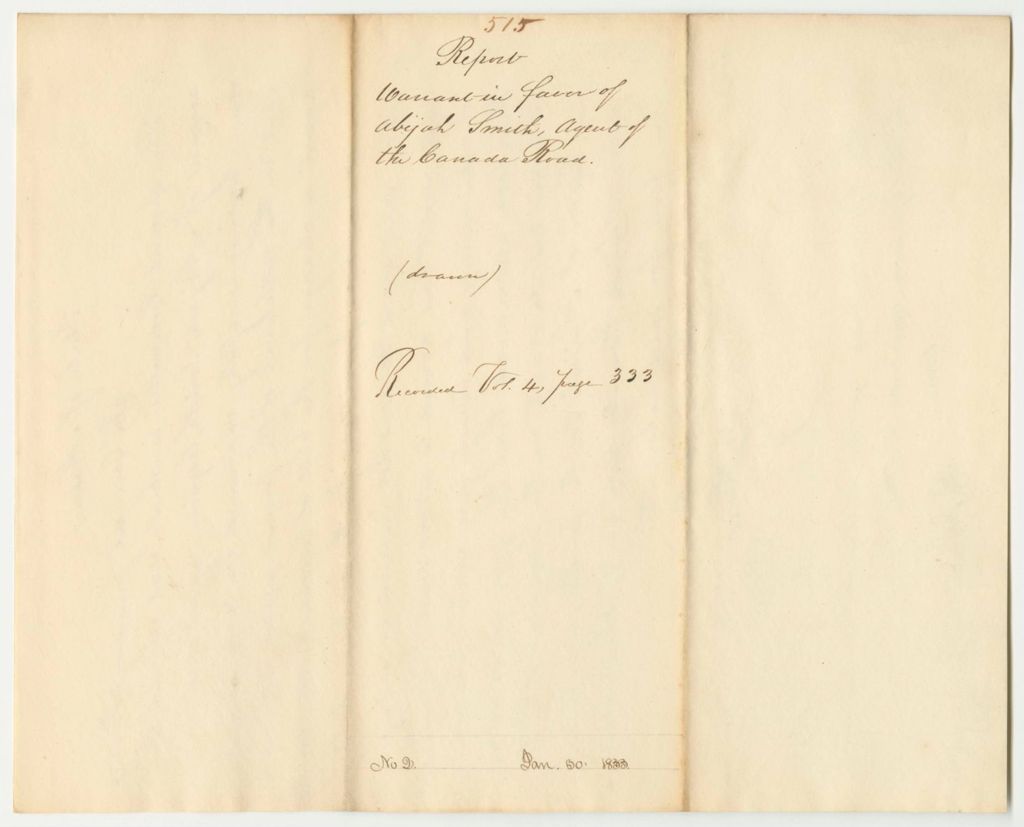 515
Report
Warrant in favor of
Abijah Smith, Agent of
the Canada Road.
(drawn)
Recorded Vol. 4, page 333
No 2. Jan. 30. 1833